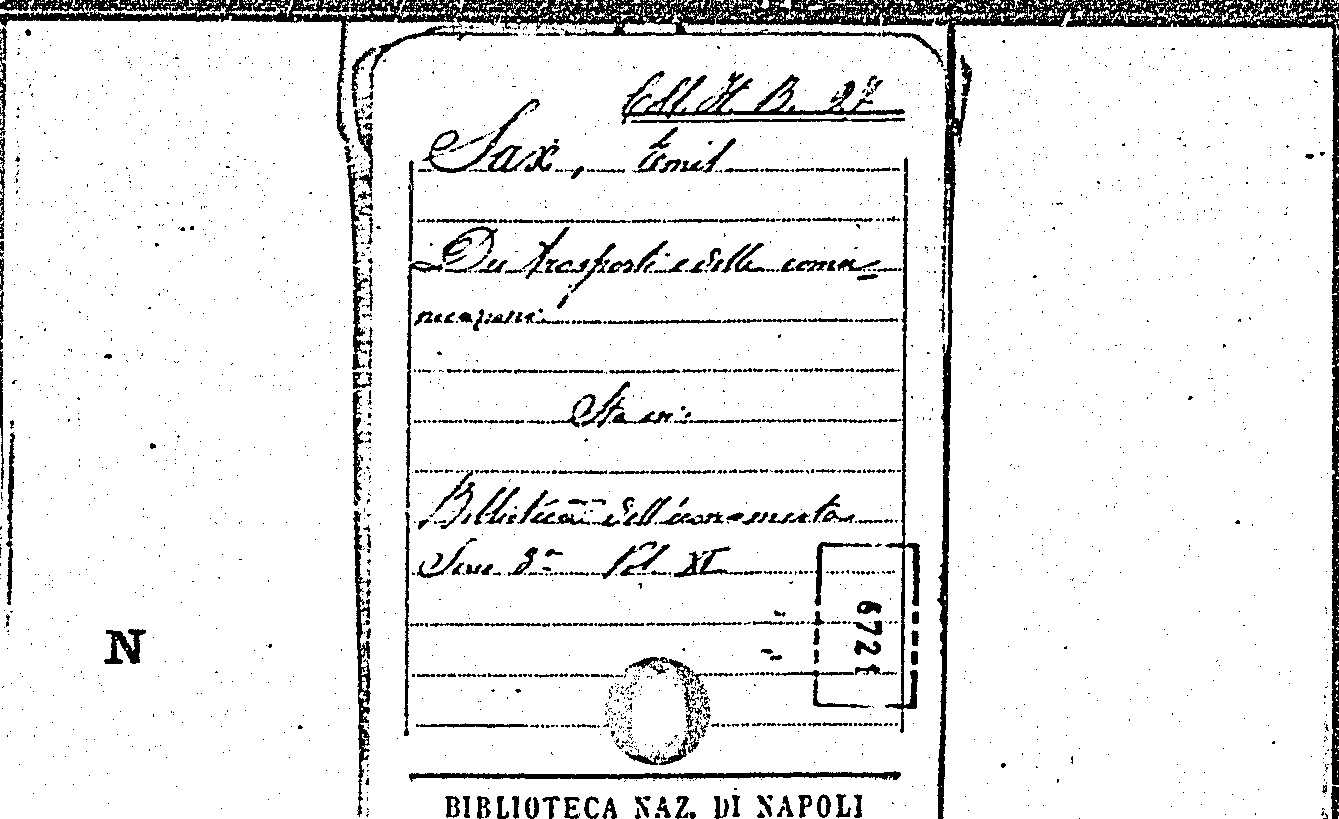 Coll. It. B. 27
Sax, Emil
Dei trasporti e delle comu=
nicazioni.
Sta in:
Biblioteca dell'economista
Serie 3ª Vol. XI
672
N
BIBLIOTECA NAZ. DI NAPOLI